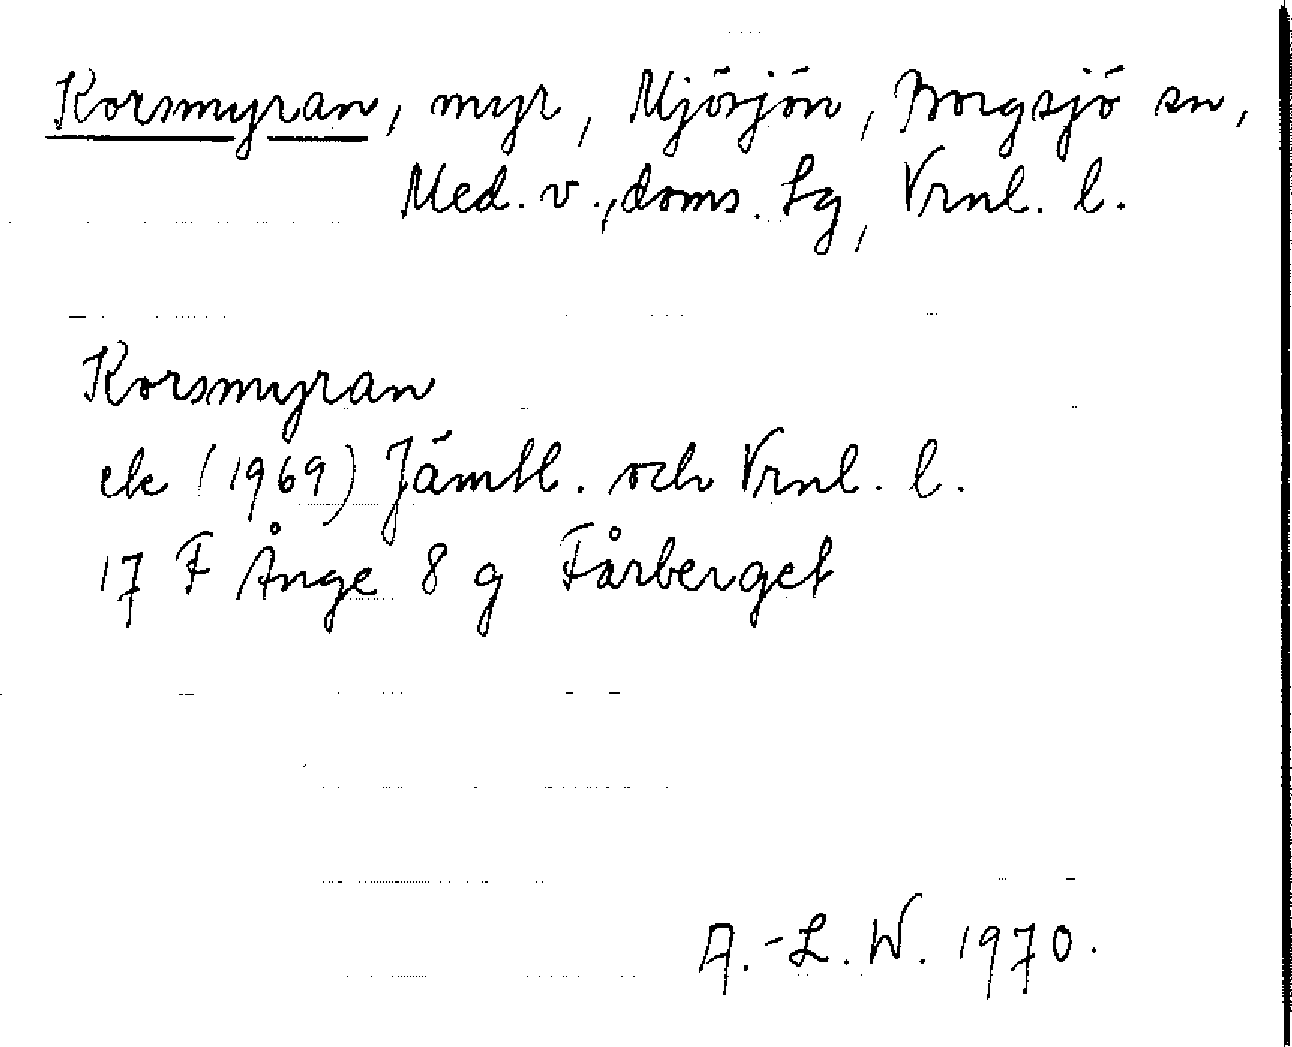 Korsmyran, myr, Mjösjön, Borgsjö sn,
Med. v., doms. Lg, Vrnl. l.
Korsmyran
ek (1969) Jämtl. och Vrnl. l.
17 F Ånge 8 g Fårberget
A.-L. W. 1970.